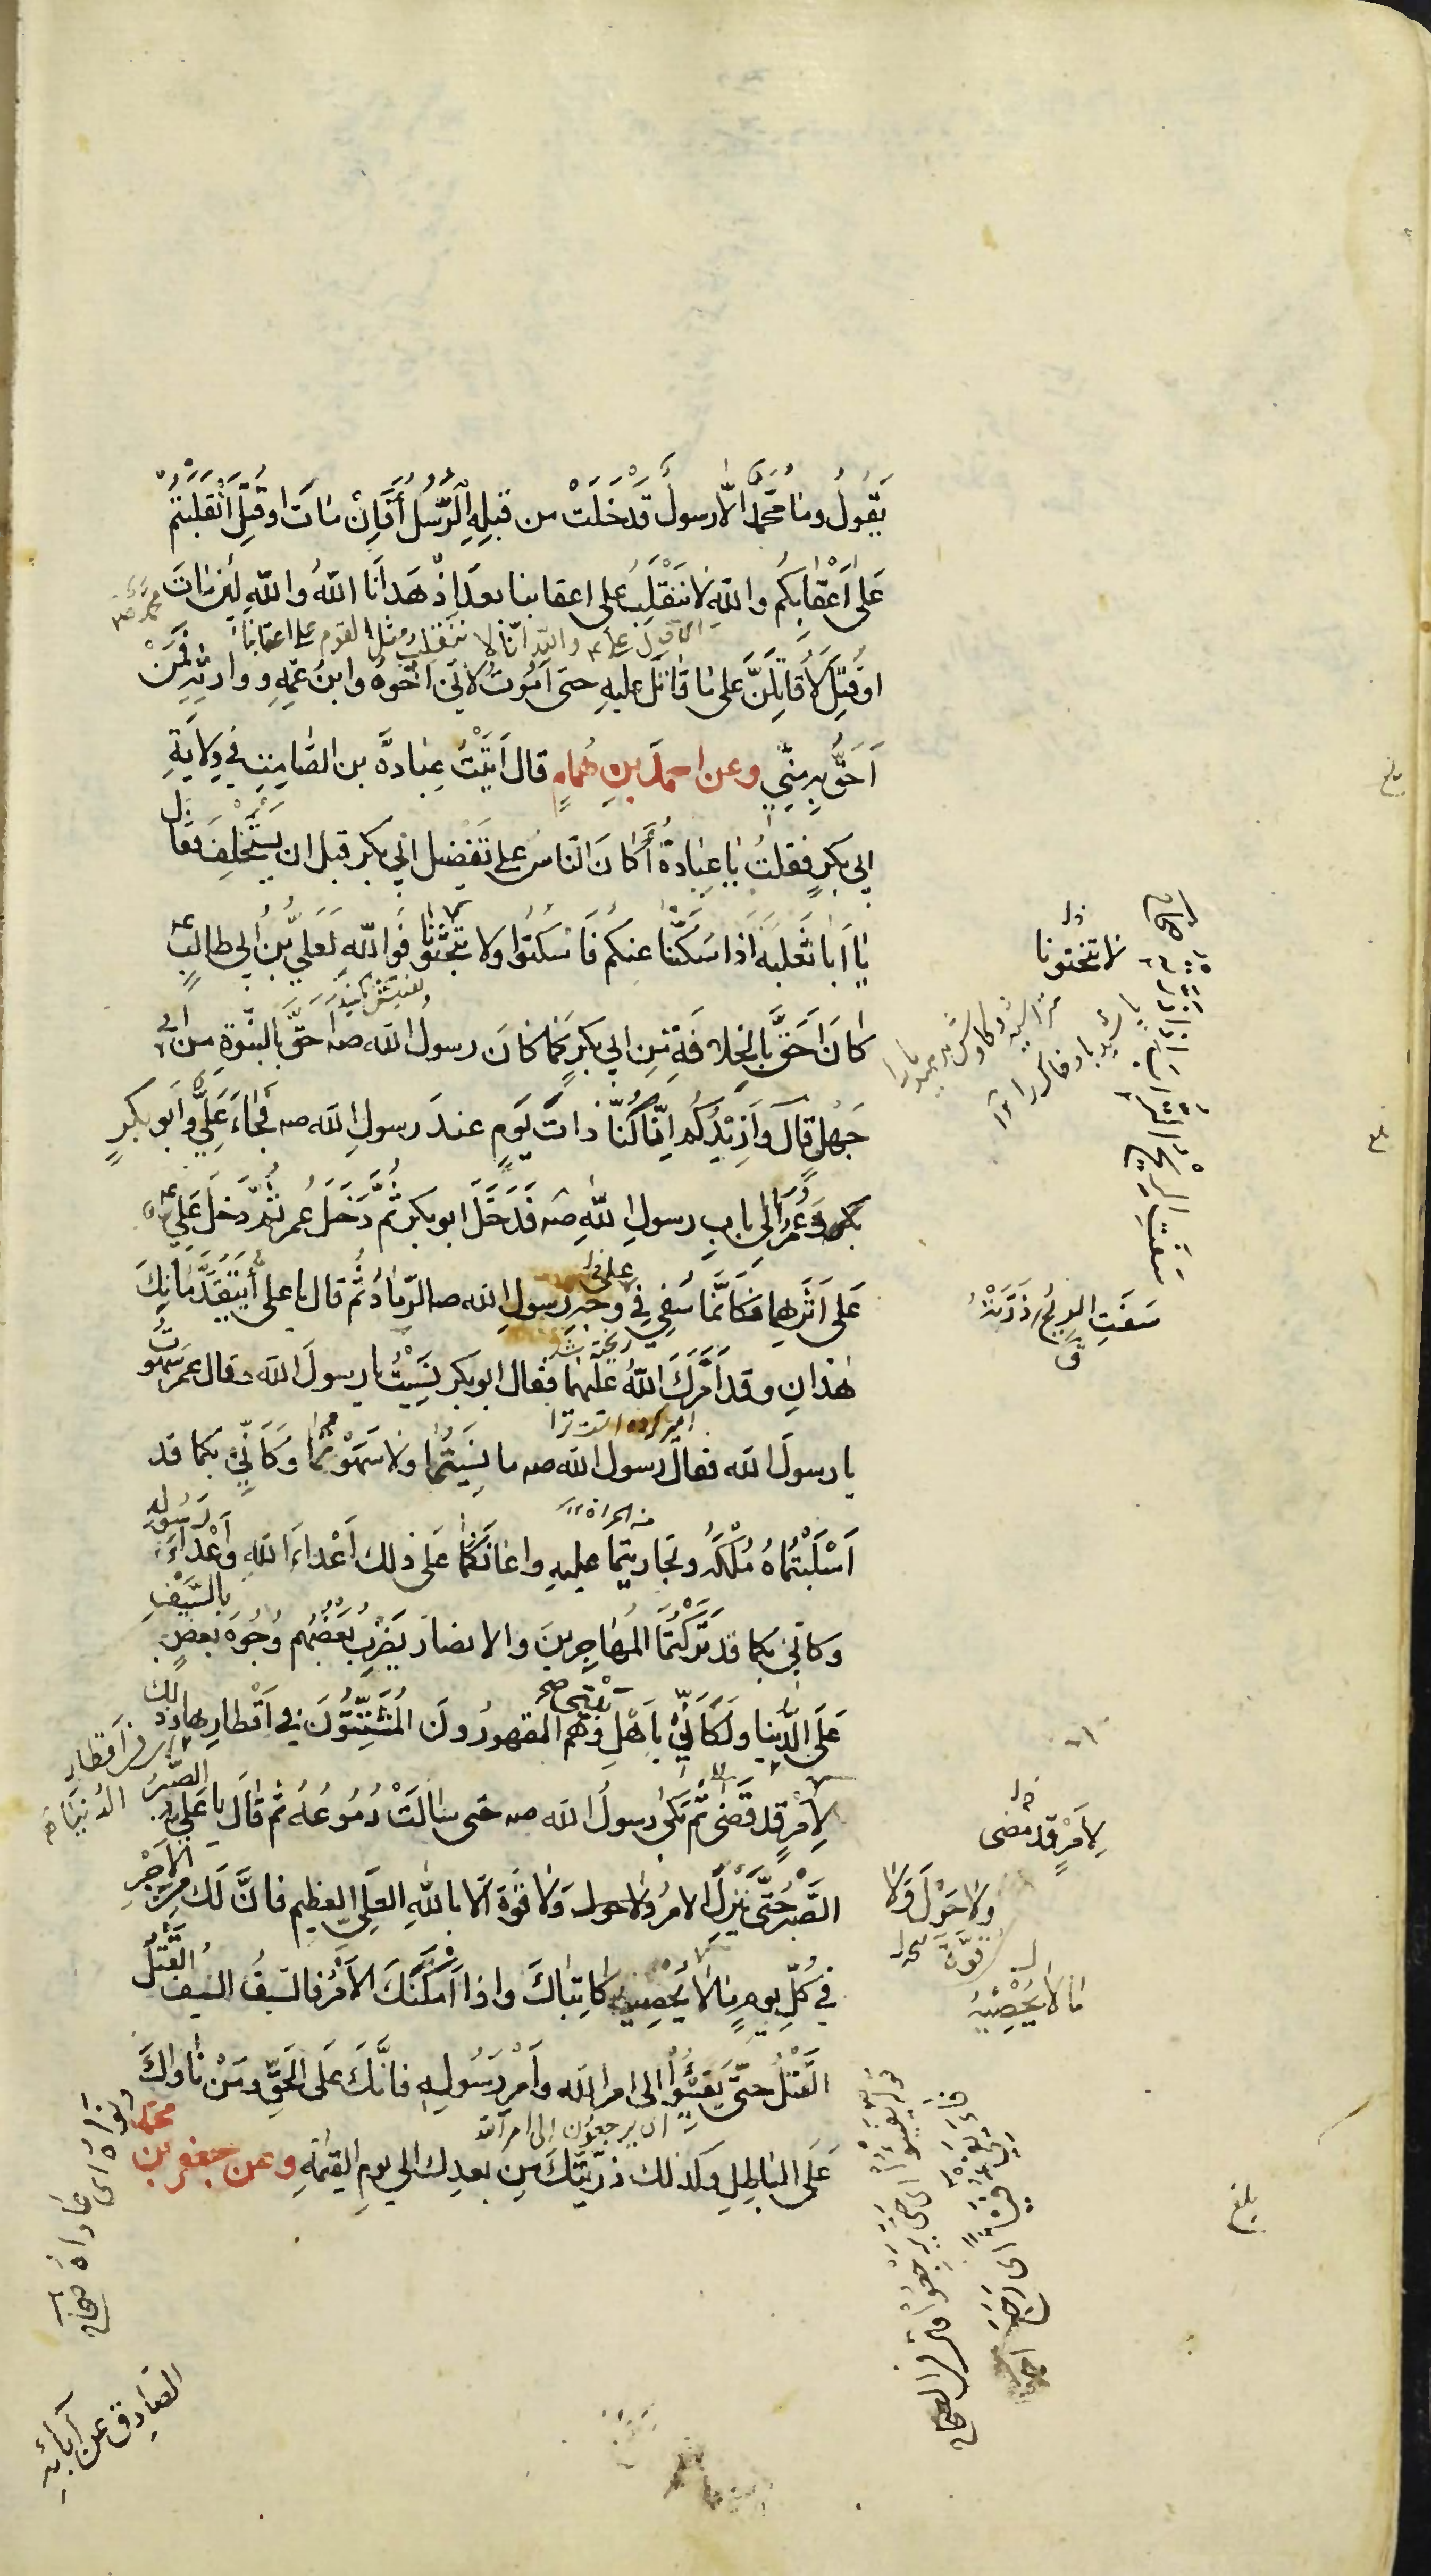 يَقُولُ وما مُحَمَّدٌ الّا رسولٌ قَدْ خَلَتْ من قبلِهِ الرُّسُلُ أَفَإِنْ مٰاتَ او قُتِلَ انْقَلَبْتُمْ
عَلىٰ اَعْقٰابِكُم واللّهِ لٰا نَنْقَلِبُ على اعقابنا بعدَ اِذْ هَدٰانَا اللّهُ واللّهِ لَئِن مٰاتَ
محمد صه
والله انّا لا ننقلب مثل القوم على اعقابنا
او قُتِلَ لَاُقٰاتِلَنَّ عَلى مٰا قٰاتَلَ عليهِ حتى اَمُوتَ لِاَنّي اَخُوهُ وابنُ عَمِّهِ ووارِثُهِ فَمَنْ
اَحَقُّ بِهِ مِنّي وعن احمدَ بنِ هُمامٍ قال اَتَيْتُ عبادةَ بن الصّامِتِ في وِلايَةِ
ابي بكرٍ فقلتُ يٰا عِبٰادةُ أَكٰانَ النّاسُ على تَفْضِيلِ ابي بكر قبل ان يَسْتَخْلِفَ فقال
يٰا اَبٰا ثَعْلَبَةَ اذا سَكَتْنا عنكم فَاسْكتوا ولا تَبْحَثُونٰا فَوَ اللّهِ لَعَلِيُّ بنُ ابي طالبٍ ع
كانَ اَحَقَّ بِالخِلافَةِ مِن ابي بكرٍ كما كانَ رسول اللّه صه اَحَقَّ بِالنّبوّةِ من ابي
جَهْلٍ قالَ وَاَزِيْدُكُم اِنّا كُنّا ذاتَ يَومٍ عندَ رسولِ اللّه صه فَجٰاءَ عَلِيٌّ وابو بكرٍ
وعُمَرُ الى بابِ رسولِ اللّهِ صه فَدَخَلَ ابو بكر ثُمَّ دَخَلَ عُمر ثُمَّ دَخَلَ عَلِي ع
عَلى اَثَرِهِما فَكَاَنَّما سُفِيَ في وجهِ رسولِ اللّه صه الرّمٰادُ ثُمَّ قال يا على أَيَتَقَدَّمٰانِكَ
ريخته شد
هٰذانِ وقد اَمَّرَكَ اللّهُ عليهما فقال ابو بكر نَسِيْتُ يا رسولَ اللّه وقال عمر سَهَوتُ
امير كرده است ترا
يا رسولَ اللّه فقال رسول اللّه صه ما نَسِيتُما ولا سَهَوْتُما وَكَاَنّي بكما قد
اَسْلَبْتُمٰاهُ مُلْكَهُ وتحاربتما عليهِ واعٰانَكُمٰا على ذلك اَعْداءُ اللّهِ وأعْدَاءُ رَسُولِهِ
وكانّي بكما قد تَرَكْتُمَا المُهٰاجِرِينَ والانصارَ يَضْرِبُ بَعضُهُم وُجُوهَ بعضٍ بالسَّيْفِ
عَلَى الدُّنيا ولَكَاَنّي بِاَهْلِ بَيْتِي وهُم المقهورُونَ المُتَشَتِّتُونَ في اَقْطارِها وذلك
في اقطار الدُّنْيا
لِاَمْرٍ قد قَضىٰ ثُمَّ بَكىٰ رسولُ اللّه صه حتى سالَتْ دُمُوعُهُ ثم قٰالَ يا عَلِيُّ الصَّبْرُ
الصَّبْرُ حَتّى يَنْزِلَ الامرُ ولا حول وَلا قُوّةَ الّا باللّهِ العَلِيِّ العظيم فانَّ لَكَ مِنَ الاَجْرِ
في كُلِّ يومٍ مٰا لٰا يُحْصِيهِ كاتِباكَ واذا اَمْكَنَكَ الاَمْرُ فالسّيفُ السّيف القَتْلُ
القَتْلُ حتّى يَفِيْئُوا الى امر اللّه وَاَمْرِ رَسُولِهِ فانَّكَ عَلَى الحَقِّ ومَنْ نٰاواكَ
اى يرجعون الى امر الله
عَلَى البٰاطِلِ وكذلك ذرّيّتُكَ مِن بعدِكَ الى يومِ القيمةِ وعن جعفر بن
محمد
الصّادِق عن آبائِهِ
فلا تبحثونا
سَفَتِ الريحُ ذَرَتْهُ
ق
لِاَمْرٍ قد مضى
ولا حَوْلَ ولا
قوّةَ
ما لا يُحْصِيهِ
بلغ
بلغ
بلغ